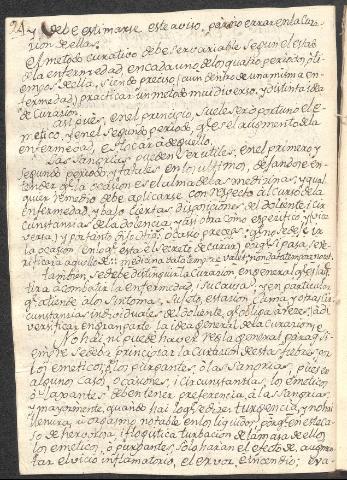 24
y debe estimarse este aviso, para no errar en la Cura-
cion de ellas.
El metodo curativo debe ser variable segun el estado
de la enfermedad, en cada uno de los quatro periodos, ò ti-
empos de ella, siendo preciso (aun dentro de una misma en-
fermedad) practicar un metodo mui diverso, y distinta idea
de Curacion.
Asi pues, en el principio, suele ser oportuno el e-
metico, y en el segundo periodo, que es el augmento de la
enfermedad,
Las Sangrias pueden ser utiles, en el primero y
segundo periodo, y fatales en los ultimos, dejandose en-
tender que la ocasion es el alma de las medizinas, y qual
quier remedio debe aplicarse con respecto al curso de la
enfermedad, y bajo ciertas disposiciones del doliente, i cir
cunstancias de la dolencia, y asi obra como especifico, y vice
versa, y por tanto
la ocasion. En lo qual está el secreto de curar,
medicina data tempore valet; non data tempore nocet.
Tambien, se debe distinguir la Curacion, en general que es la que
tira à combatir la enfermedad, i sus causas, y en particular
que atiende à los Sintomas, Sugeto, estacion, Clima, y otras Cir
cunstancias individuales del doliente, que obliga à veces, à di
versificar en gran parte la idea general de la Curacion.
No hai ni puede haver regla general para que si-
empre se deba principiar la Curacion de estas fiebres por
los emeticos, ò los purgantes, ò las sangrias, pues en
algunos casos, ocasiones, i circunstancias, los emeticos
ò laxantes deben tener preferencia, à las sangrias,
y mayormente, quando hai lo que dicen turgencia, y no hai
plenitud, ù orgasmo notable en los liquidos, porque en este ca-
so de hervor, i flogistica turbacion de la masa de ellos,
los emeticos, ò purgantes, solo haran el efecto de augmen-
tar el vicio inflamatorio, el ervor, è incendio;